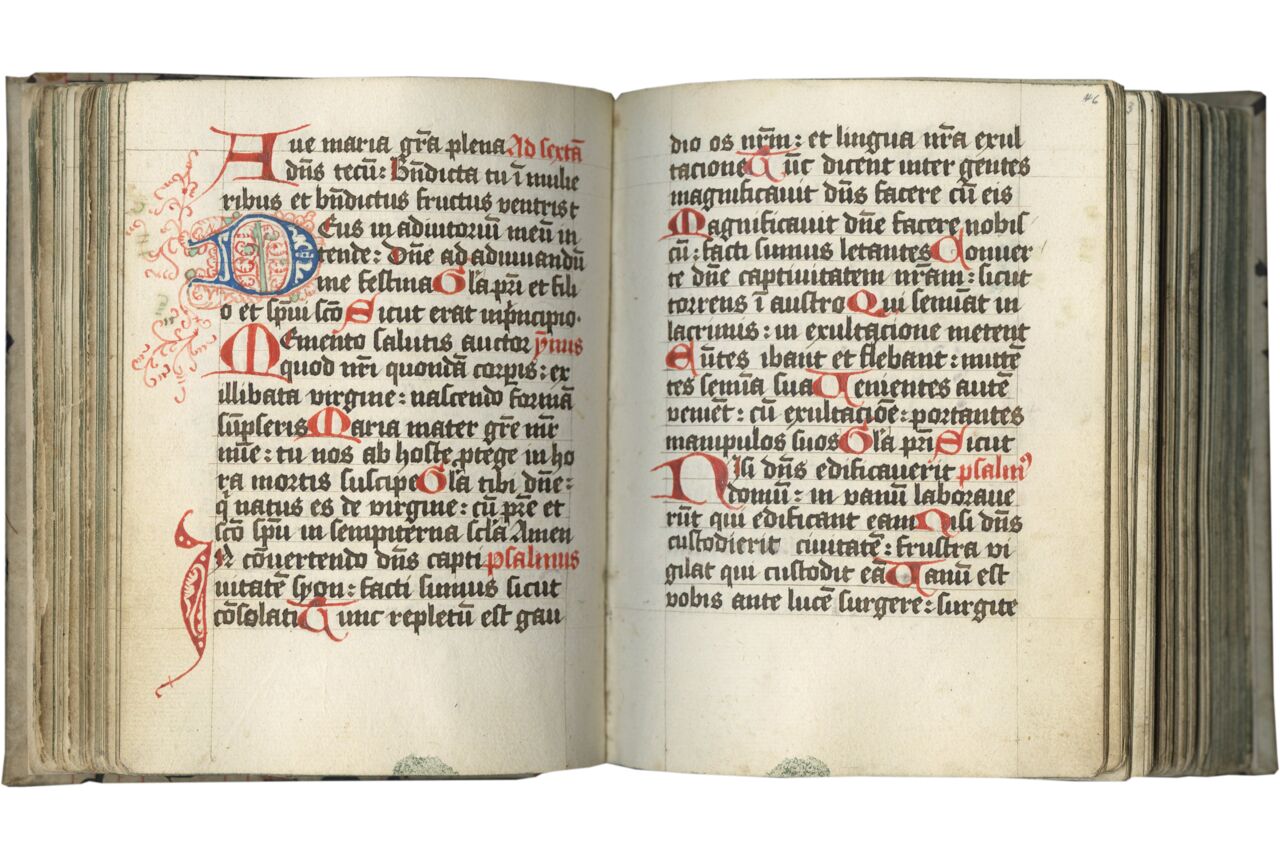 Aue maria gr̄a plena Ad sextā
dn̄s tecū: Bn̄dicta tu ī mulie
ribus et bn̄dictus fructus ventris t
Deus in adiutoriū meū in
tende: Dn̄e ad adiuuandū
me festina Gl'a pr̄i et fili
o et sp̄ui sc̄o Sicut erat inp̄ncipio.
Memento salutis auctor ȳmus
quod nr̄i quondā corp̄is: ex
illibata virgine: nascendo formā
sūpseris Maria mater gr̄e mr̄
mīe: tu nos ab hoste p̱tege in ho
ra mortis suscipe Gl'a tibi dn̄e:
q̇ natus es de virgine: cū pr̄e et
sc̄o sp̄u in sempiterna sc̄la Amen
In cōuertendo dn̄s capti psalmus
uitatē syon: facti sumus sicut
cōsolati Tunc repletū est gau
46
dio os nr̄m: et lingua nr̄a exul
tacione Tūc dicent inter gentes
magnificauit dn̄s facere cū eis
Magnificauit dn̄e facere nobis
cū: facti sumus letantes Conuer
te dn̄e captiuitatem nr̄am: sicut
torrens ī austro Qui semīat in
lacrimis: in exultacione metent
Eūtes ibant et flebant: mittē
tes semīa sua Uenientes autē
veniēt: cū exultaciōe: portantes
manipulos suos Gl'a pr̄i Sicut
Nisi dn̄s edificauerit psalm9
domū: in vanū laboraue
rūt qui edificant eam Nisi dn̄s
custodierit ciuitatē: frustra vi
gilat qui custodit eā Uanū est
vobis ante lucē surgere: surgite